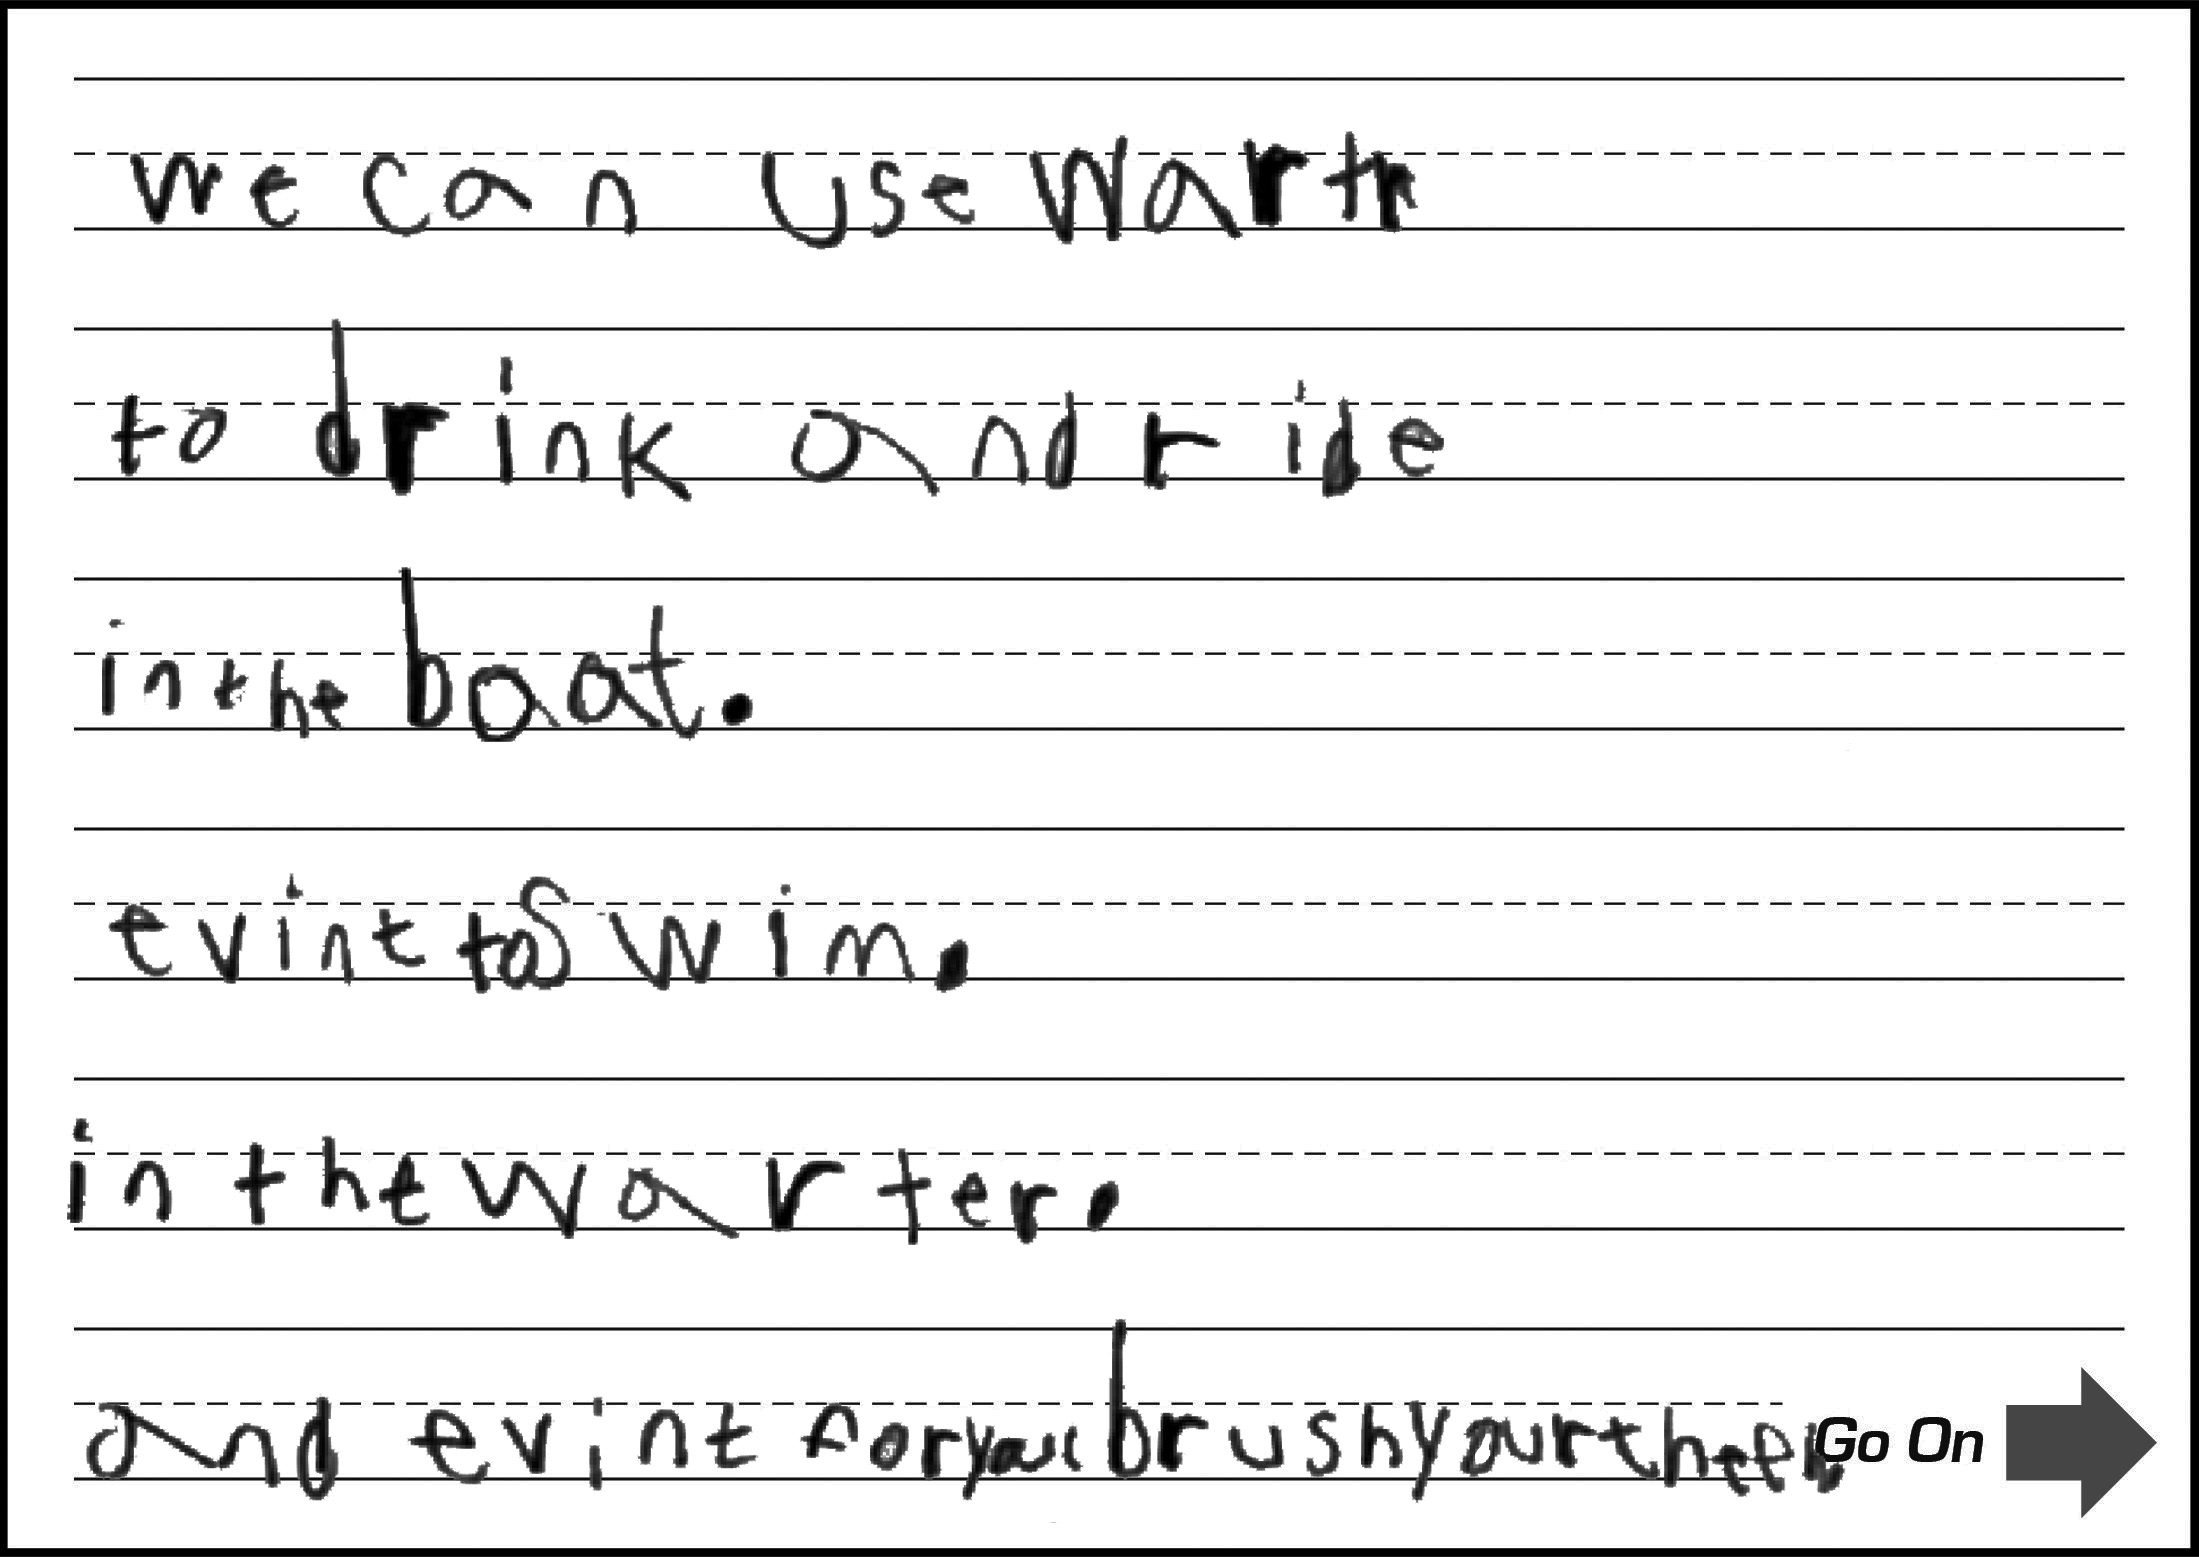 we can use Wartr
to drink and ride
in the baat.
evint to Swim.
in the warter.
and evint for your brush your Go On